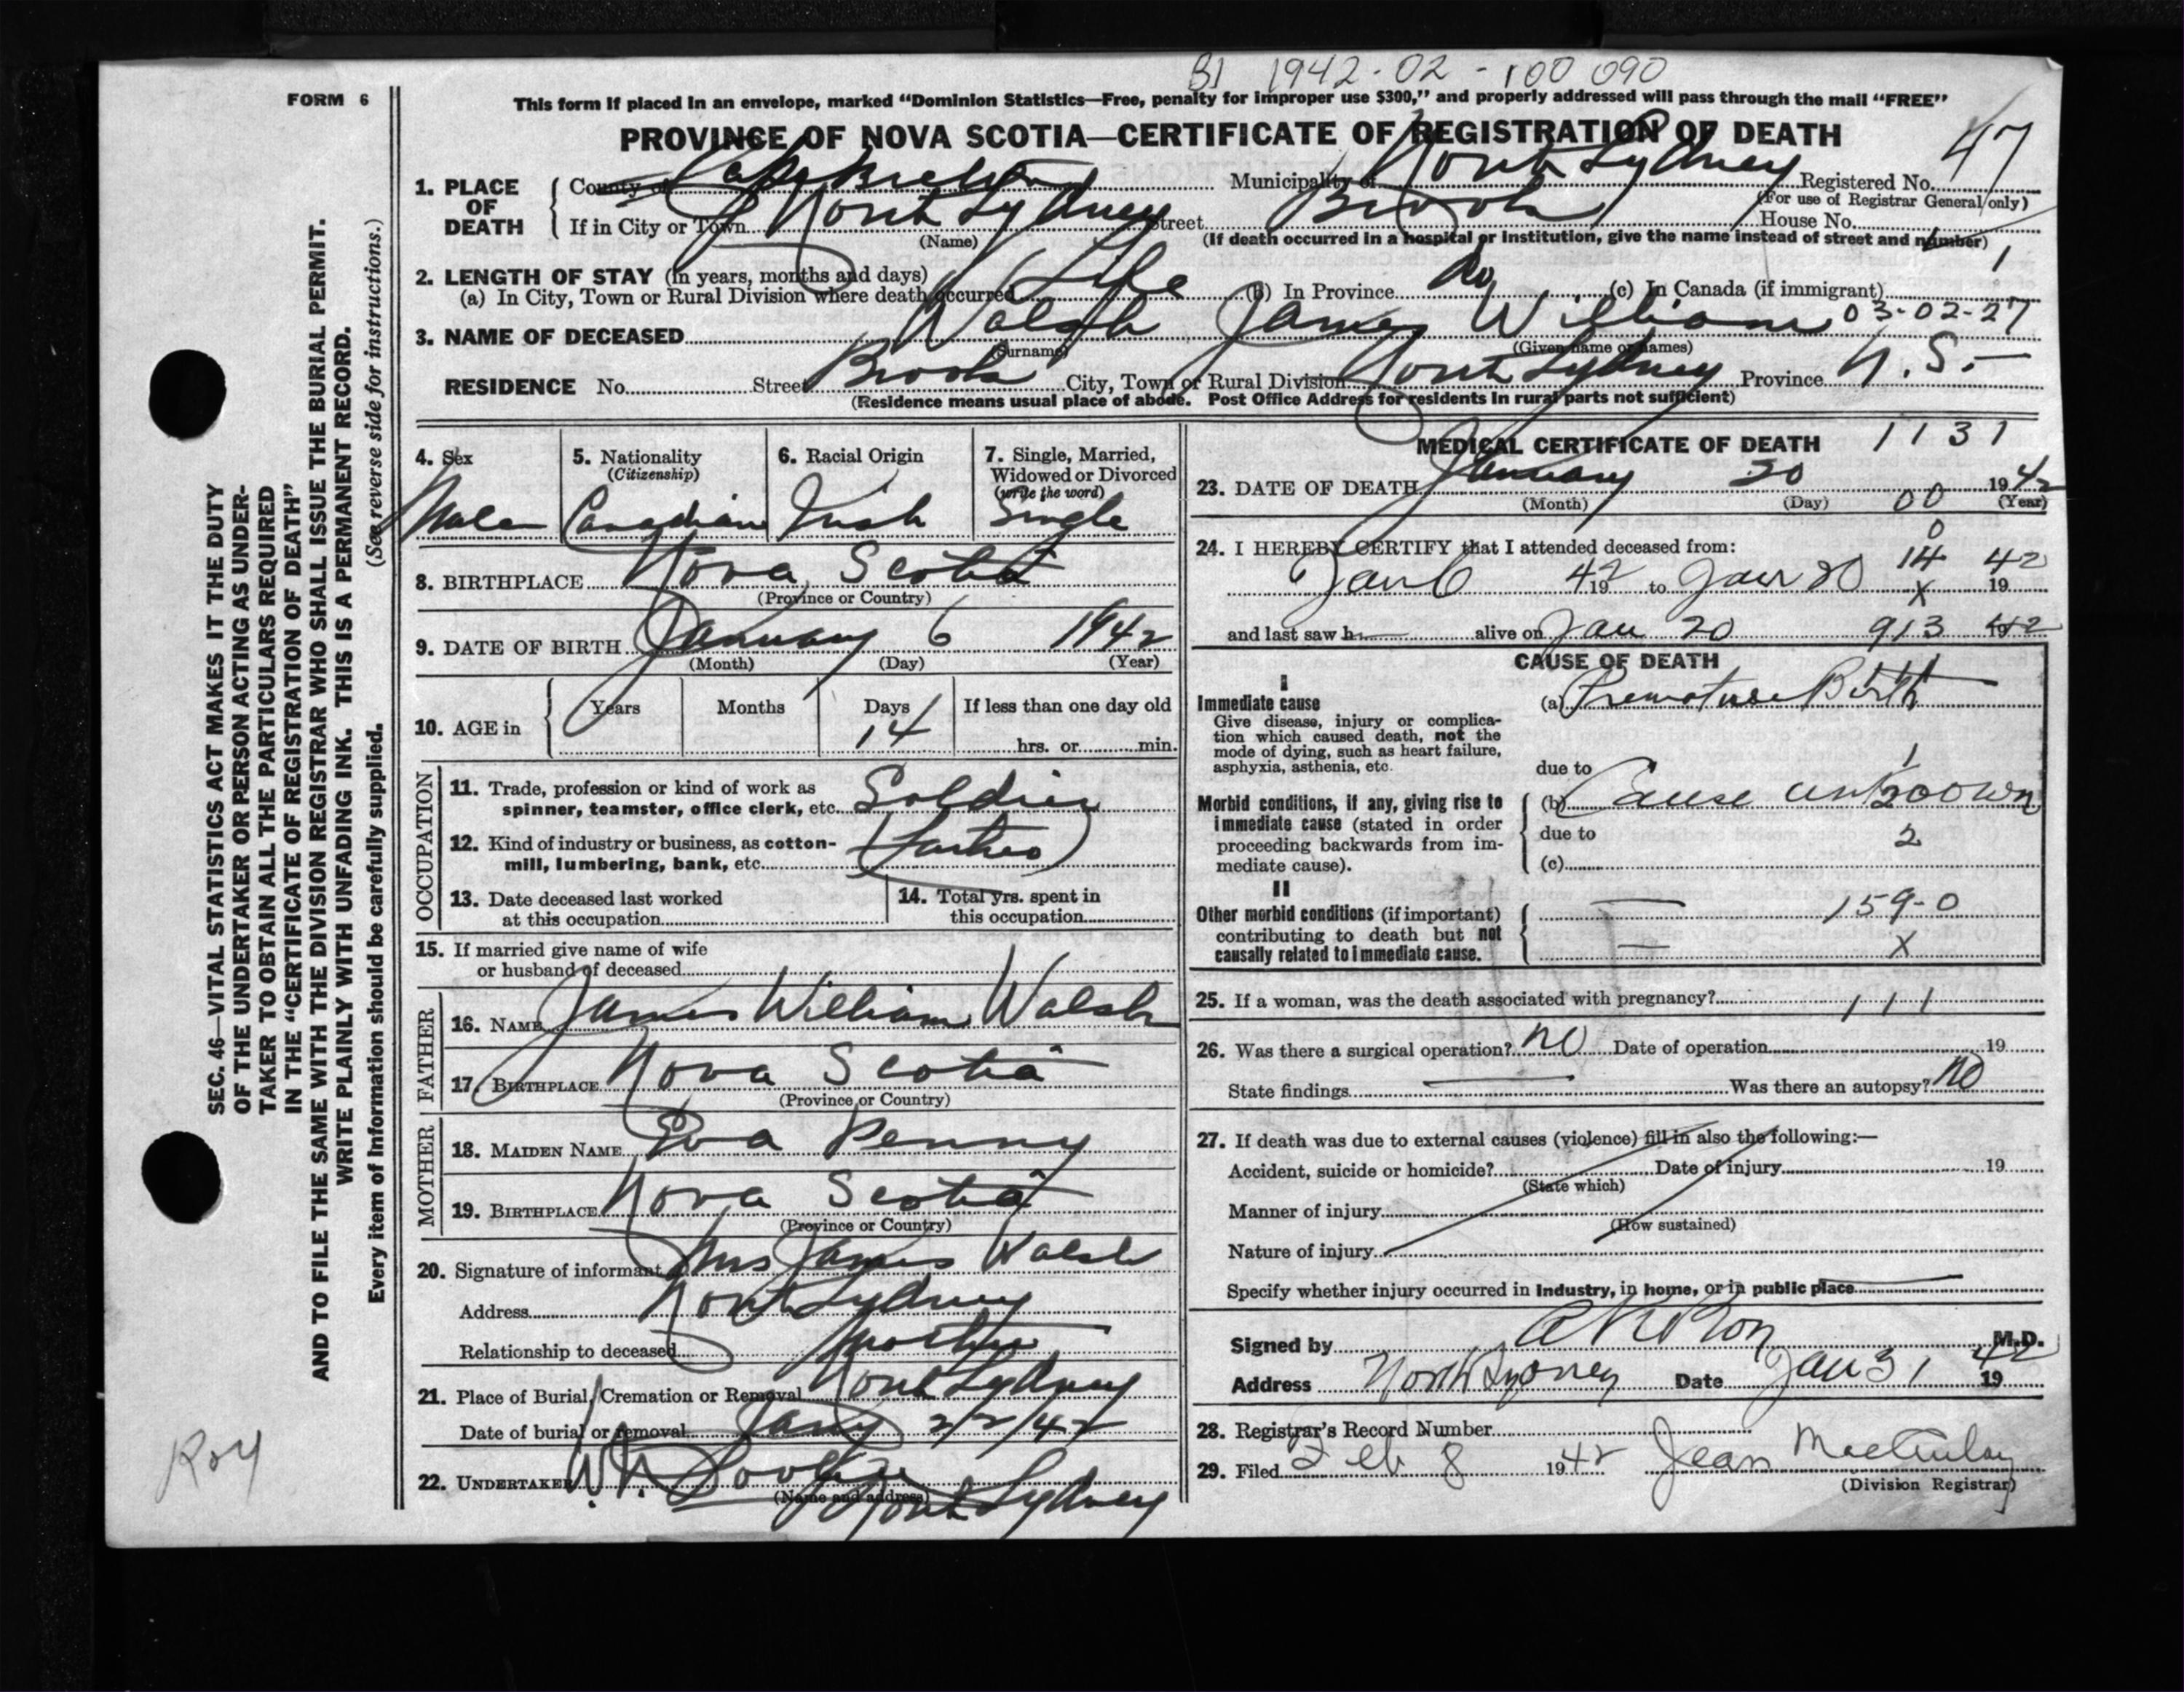 B1 1942-02-100 090
FORM 6
This form if placed in an envelope, marked "Dominion Statistics—Free, penalty for improper use $300," and properly addressed will pass through the mail "FREE"
PROVINCE OF NOVA SCOTIA—CERTIFICATE OF REGISTRATION OF DEATH
47
1. PLACE OF DEATH
County of Cape Breton Municipality of North Sydney Registered No.
(For use of Registrar General only)
If in City or Town North Sydney Street Brook House No.
(Name)
(If death occurred in a hospital or institution, give the name instead of street and number)
2. LENGTH OF STAY (in years, months and days)
(a) In City, Town or Rural Division where death occurred Life (b) In Province do (c) In Canada (if immigrant) 1
3. NAME OF DECEASED Walsh James William 03-02-27
(Surname) (Given name or names)
RESIDENCE No. Street Brook City, Town or Rural Division North Sydney Province N.S.
(Residence means usual place of abode. Post Office Address for residents in rural parts not sufficient)
4. Sex Male
5. Nationality (Citizenship) Canadian
6. Racial Origin Irish
7. Single, Married, Widowed or Divorced (write the word) Single
8. BIRTHPLACE Nova Scotia
(Province or Country)
9. DATE OF BIRTH January 6 1942
(Month) (Day) (Year)
10. AGE in Years Months Days 14 If less than one day old
hrs. or min.
OCCUPATION
11. Trade, profession or kind of work as
spinner, teamster, office clerk, etc. Soldier
12. Kind of industry or business, as cotton-
mill, lumbering, bank, etc.
13. Date deceased last worked
at this occupation
14. Total yrs. spent in
this occupation
15. If married give name of wife
or husband of deceased
FATHER
16. NAME James William Walsh
17. BIRTHPLACE Nova Scotia
(Province or Country)
MOTHER
18. MAIDEN NAME Eva Penny
19. BIRTHPLACE Nova Scotia
(Province or Country)
20. Signature of informant Mrs James Walsh
Address North Sydney
Relationship to deceased Mother
21. Place of Burial, Cremation or Removal North Sydney
Date of burial or removal 2/2/42
22. UNDERTAKER
(Name and address) North Sydney
MEDICAL CERTIFICATE OF DEATH 1131
23. DATE OF DEATH January 20 1942
(Month) (Day) 00 (Year)
24. I HEREBY CERTIFY that I attended deceased from: 0
14
Jan 6 1942 to Jan 20 1942
X
and last saw h alive on Jan 20 913 1942
CAUSE OF DEATH
I
Immediate cause
Give disease, injury or complica-
tion which caused death, not the
mode of dying, such as heart failure,
asphyxia, asthenia, etc.
(a) Premature Birth
due to 1
Morbid conditions, if any, giving rise to
immediate cause (stated in order
proceeding backwards from im-
mediate cause).
(b) Cause unknown
due to 2
(c)
II
Other morbid conditions (if important)
contributing to death but not
causally related to immediate cause.
159-0
X
25. If a woman, was the death associated with pregnancy? 111
26. Was there a surgical operation? no Date of operation 19
State findings Was there an autopsy? no
27. If death was due to external causes (violence) fill in also the following:—
Accident, suicide or homicide? Date of injury 19
(State which)
Manner of injury
(How sustained)
Nature of injury
Specify whether injury occurred in industry, in home, or in public place
Signed by M.D.
Address North Sydney Date Jan 31 1942
28. Registrar's Record Number
29. Filed Feb 8 1942 Jean
(Division Registrar)
SEC. 46—VITAL STATISTICS ACT MAKES IT THE DUTY
OF THE UNDERTAKER OR PERSON ACTING AS UNDER-
TAKER TO OBTAIN ALL THE PARTICULARS REQUIRED
IN THE "CERTIFICATE OF REGISTRATION OF DEATH"
AND TO FILE THE SAME WITH THE DIVISION REGISTRAR WHO SHALL ISSUE THE BURIAL PERMIT.
WRITE PLAINLY WITH UNFADING INK. THIS IS A PERMANENT RECORD.
(See reverse side for instructions.)
Every item of information should be carefully supplied.
Roy